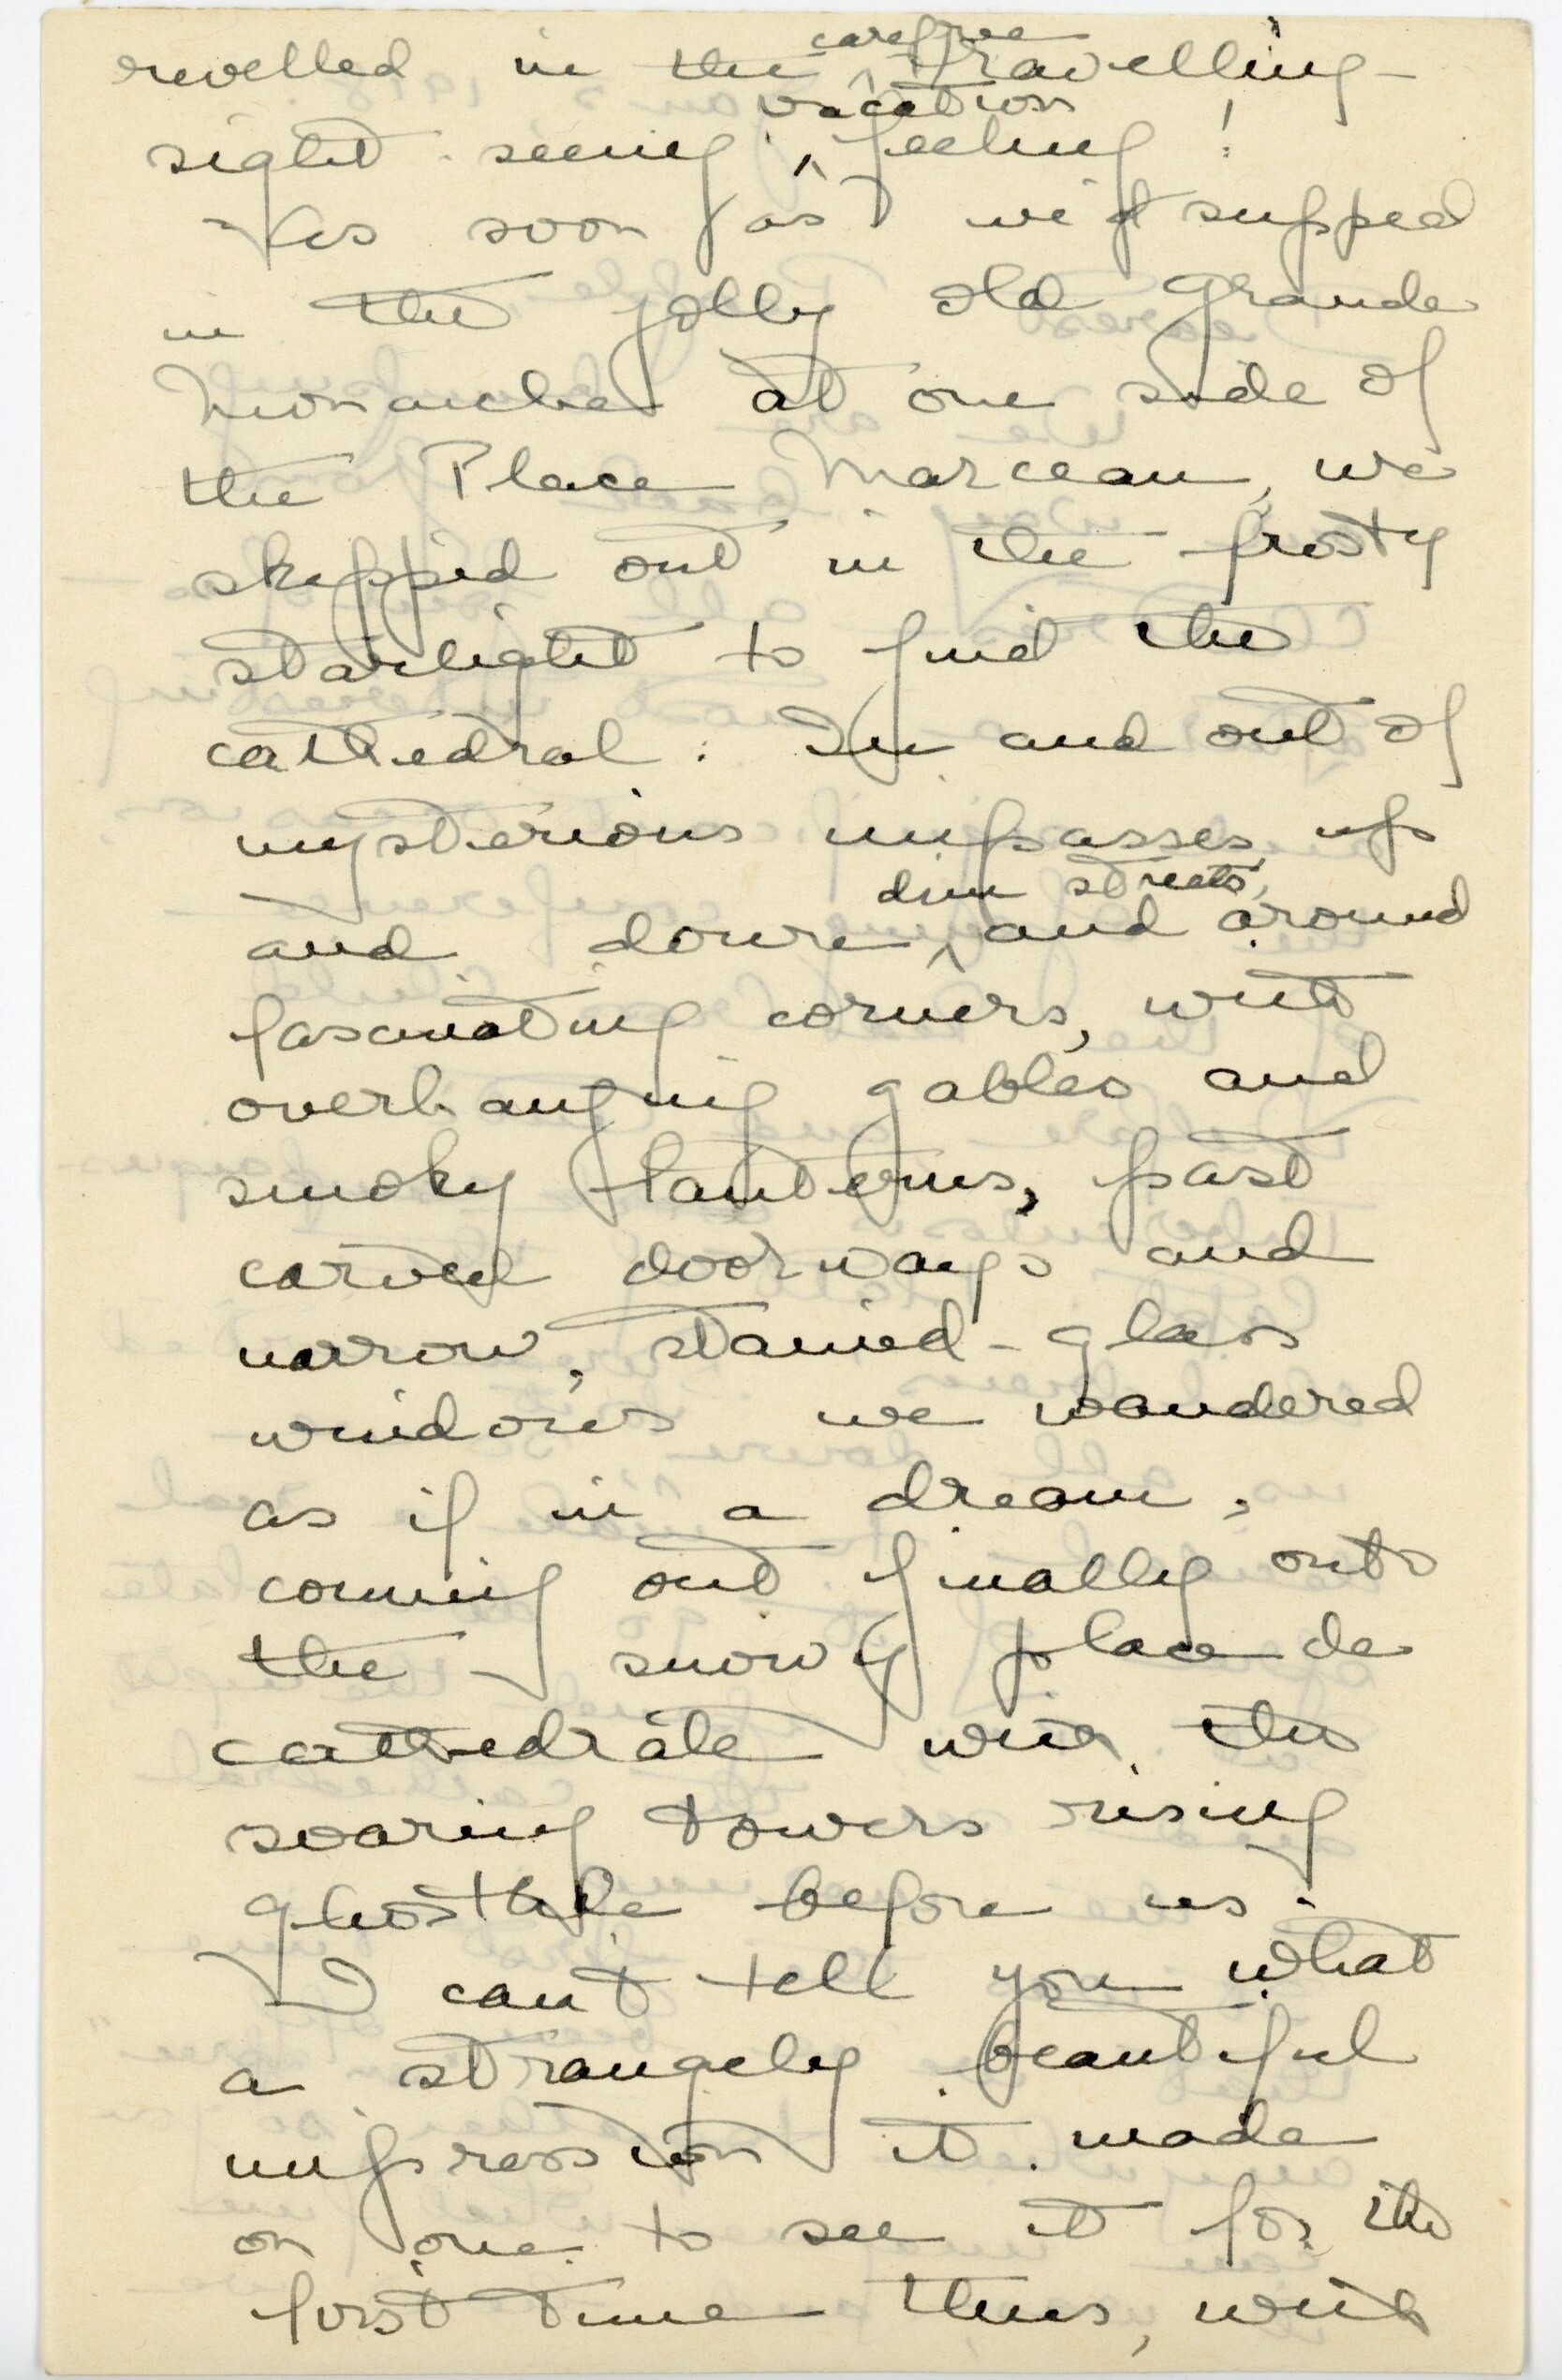 revelled in the ^carefree travelling-
sight-seeing ^vacation feeling!
As soon as we'd supped
in the jolly old Grande
Monarche at one side of
the Place Marceau, we
skipped out in the frosty
starlight to find the
cathedral. In and out of
mysterious impasses, up
and down ^dim streets, and around
fascinating corners, with
overhanging gables and
smoky lanterns, past
carved doorways and
narrow, stained-glass
windows we wandered
as if in a dream,
coming out finally onto
the snowy place de
cathedrále with the
soaring towers rising
ghostlike before us.
I can't tell you what
a strangely beautiful
impression it made
on one to see it for the
first time thus, with